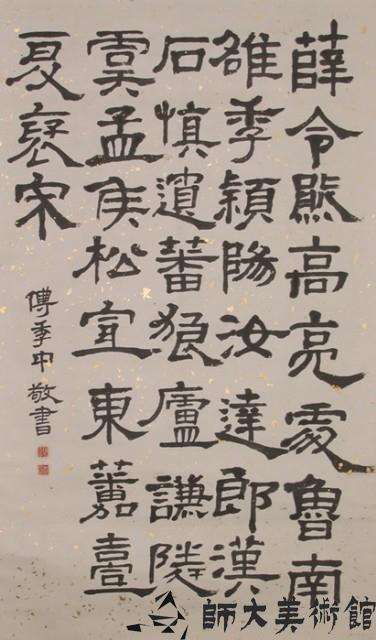 薛令熊高亮處魯南
雒季穎陽汝達郎漢
石慎遺蕃狼盧謙隣
虞孟侯松宜東臺
夏褒宋
傅季中敬書
師大美術館